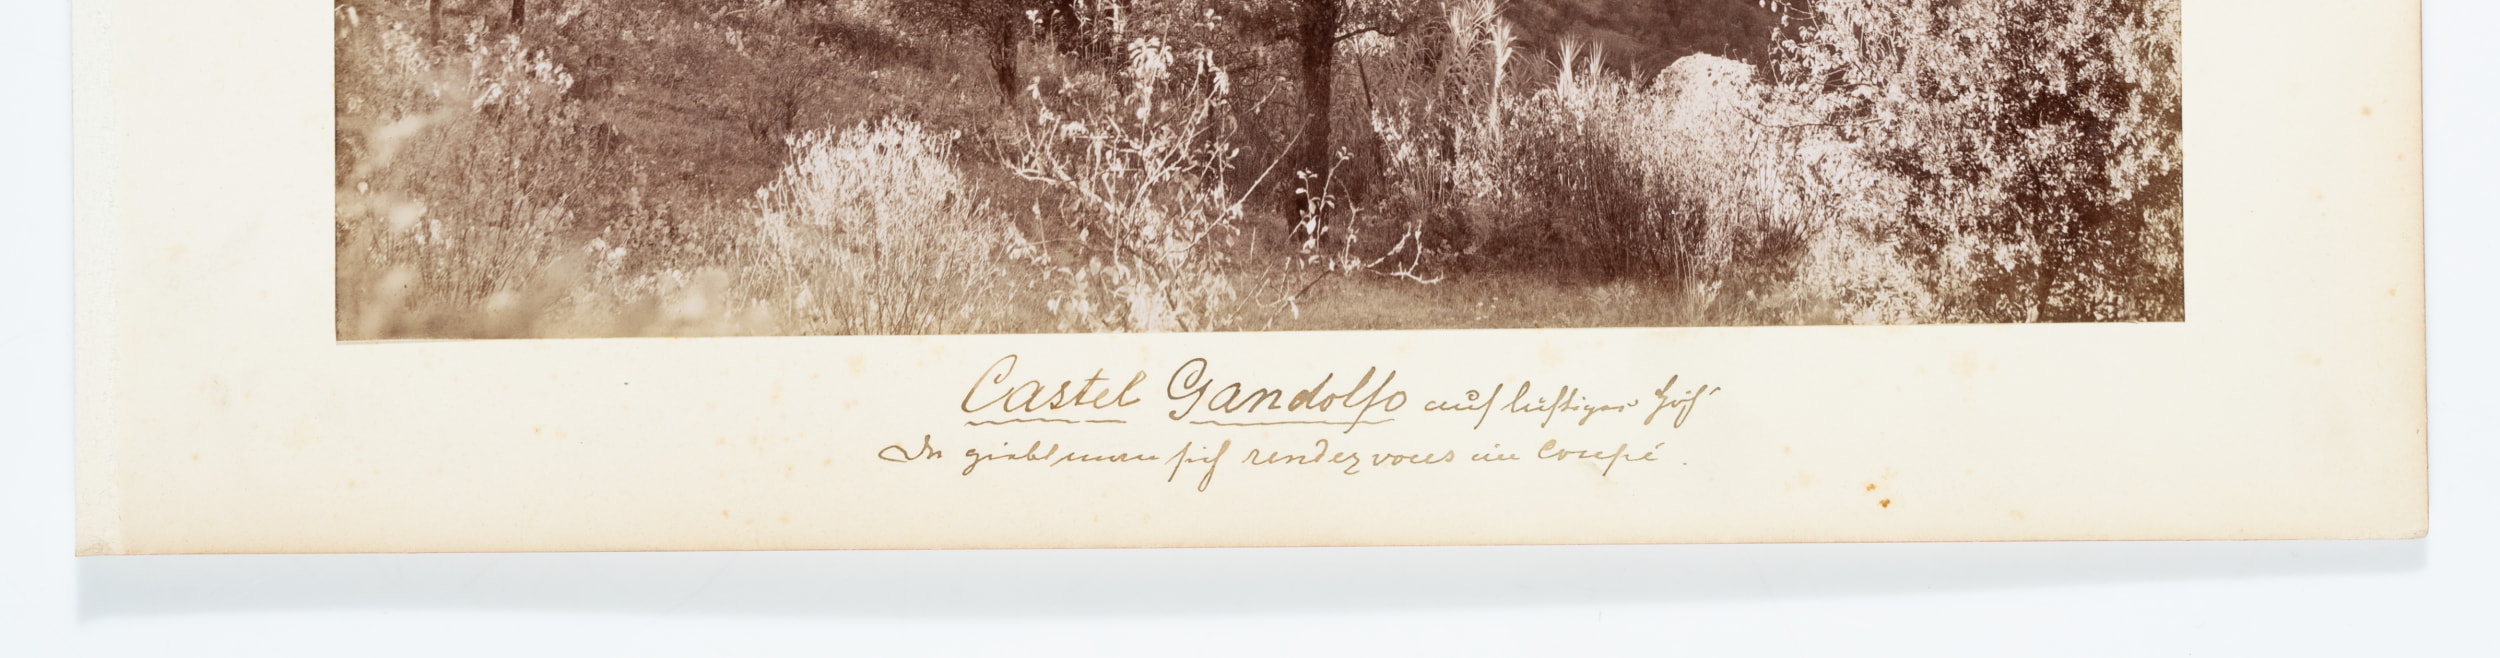 Castel Gandolfo auf luftiger Höh'
Da giebt man sich rendez vous im Coupé.